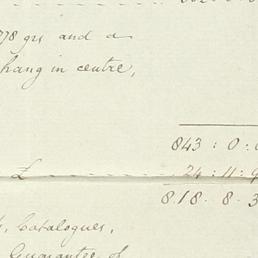 778 grs and a
hang in centre,
843 : 0 :
£ 24 : 11 : 9
818 . 8 . 3
Catalogues,
Guarantee of